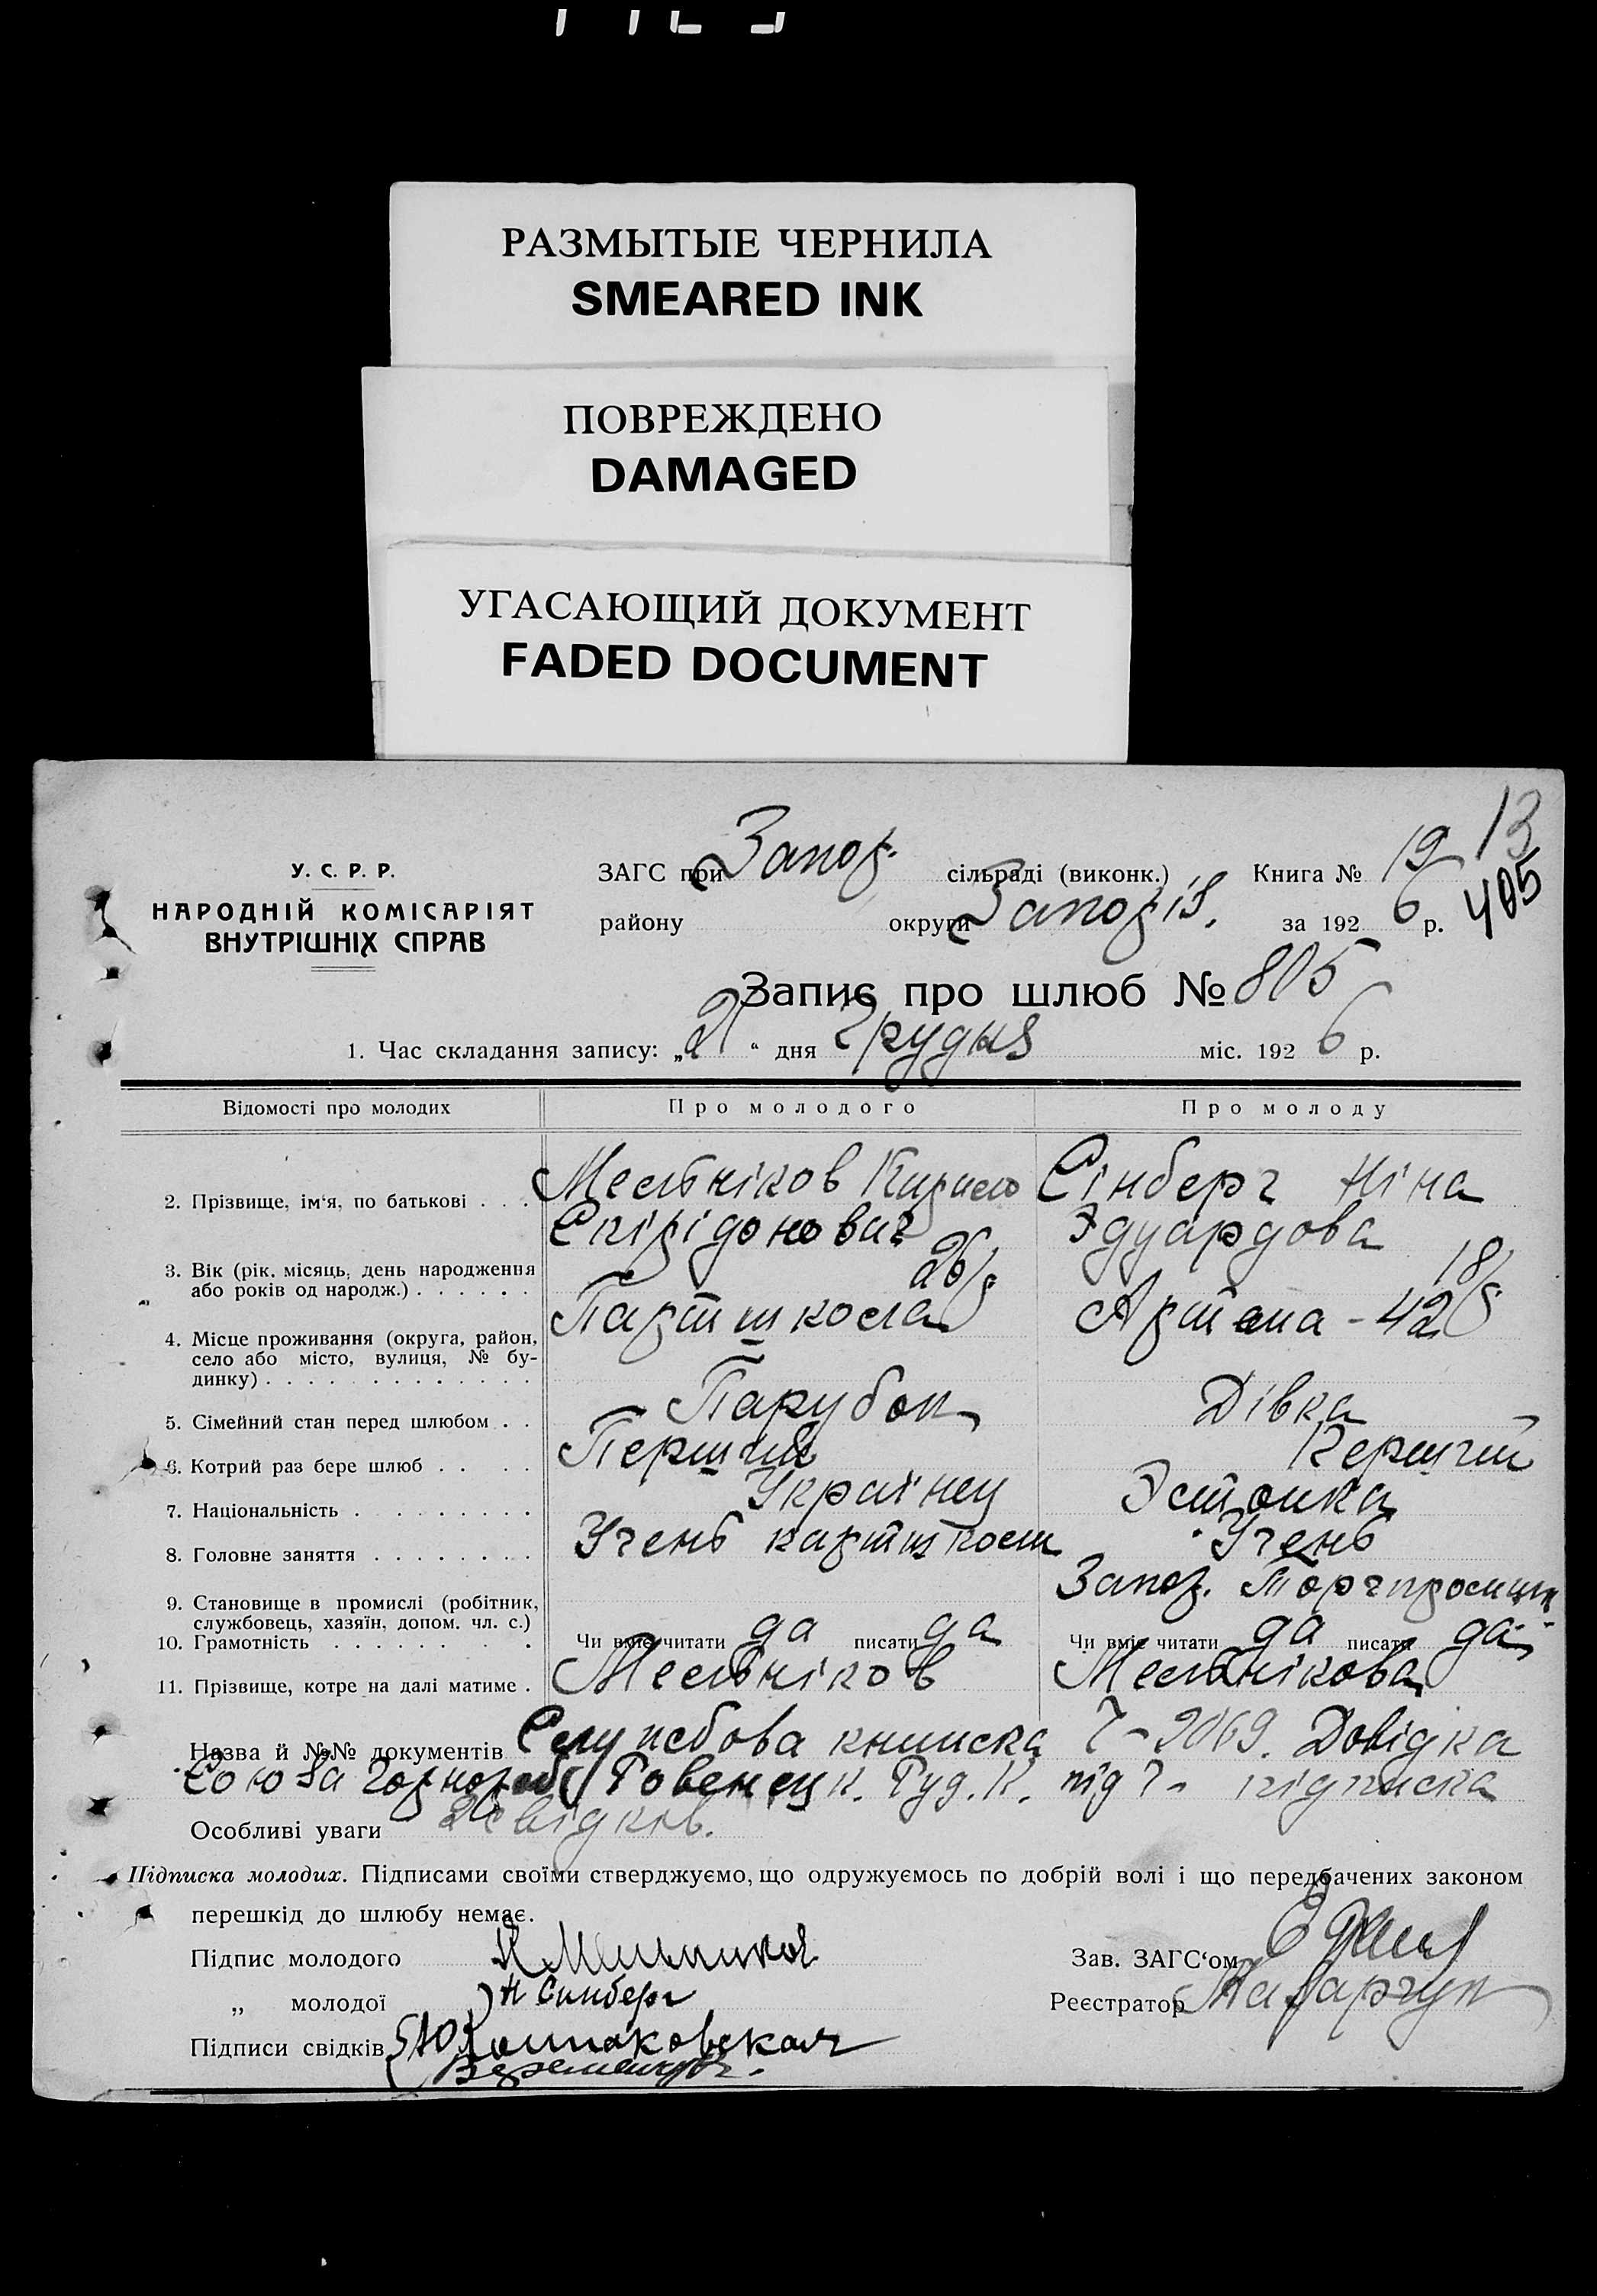 РАЗМЫТЫЕ ЧЕРНИЛА
SMEARED INK
ПОВРЕЖДЕНО
DAMAGED
УГАСАЮЩИЙ ДОКУМЕНТ
FADED DOCUMENT
13
405
У. С. Р. Р.
НАРОДНІЙ КОМІСАРІЯТ
ВНУТРІШНІХ СПРАВ
ЗАГС при Запоз. сільраді (виконк.) Книга № 19
району округи Запозіз. за 1926 р.
Запис про шлюб № 805
1. Час складання запису: „21“ дня Грудня міс. 1926 р.
Відомості про молодих Про молодого Про молоду
2. Прізвище, ім‘я, по батькові . . . Мельніков Кирило Сінберг Ніна
Спірідонович Эдуардова
3. Вік (рік, місяць, день народження 26 18
або років од народж.) . . . . . .
4. Місце проживання (округа, район, Партшкола Артема - 42
село або місто, вулиця, № бу-
динку) . . . . . . . . . . . . .
5. Сімейний стан перед шлюбом . . Парубок Дівка
6. Котрий раз бере шлюб . . . . Перший Перший
7. Національність . . . . . . . . . Українец Эстонка
8. Головне заняття . . . . . . . . Учень партшколи Учень
Запоз. Торгпромшк
9. Становище в промислі (робітник,
службовець, хазяїн, допом. чл. с.)
10. Грамотність . . . . . . . . Чи вміє читати да писати да Чи вміє читати да писати да
11. Прізвище, котре на далі матиме . Мельніков Мельнікова
Назва й №№ документів Служебова книжка 7-2069. Довідка
Союза Горнораб Ровенецк. Руд. К. під ч- підписка
Особливі уваги 2 свідків.
Підписка молодих. Підписами своїми стверджуємо, що одружуємось по добрій волі і що передбачених законом
перешкід до шлюбу немає.
Підпис молодого К Мельников Зав. ЗАГС‘ом
„ молодої Н Синберг Реєстратор
Підписи свідків